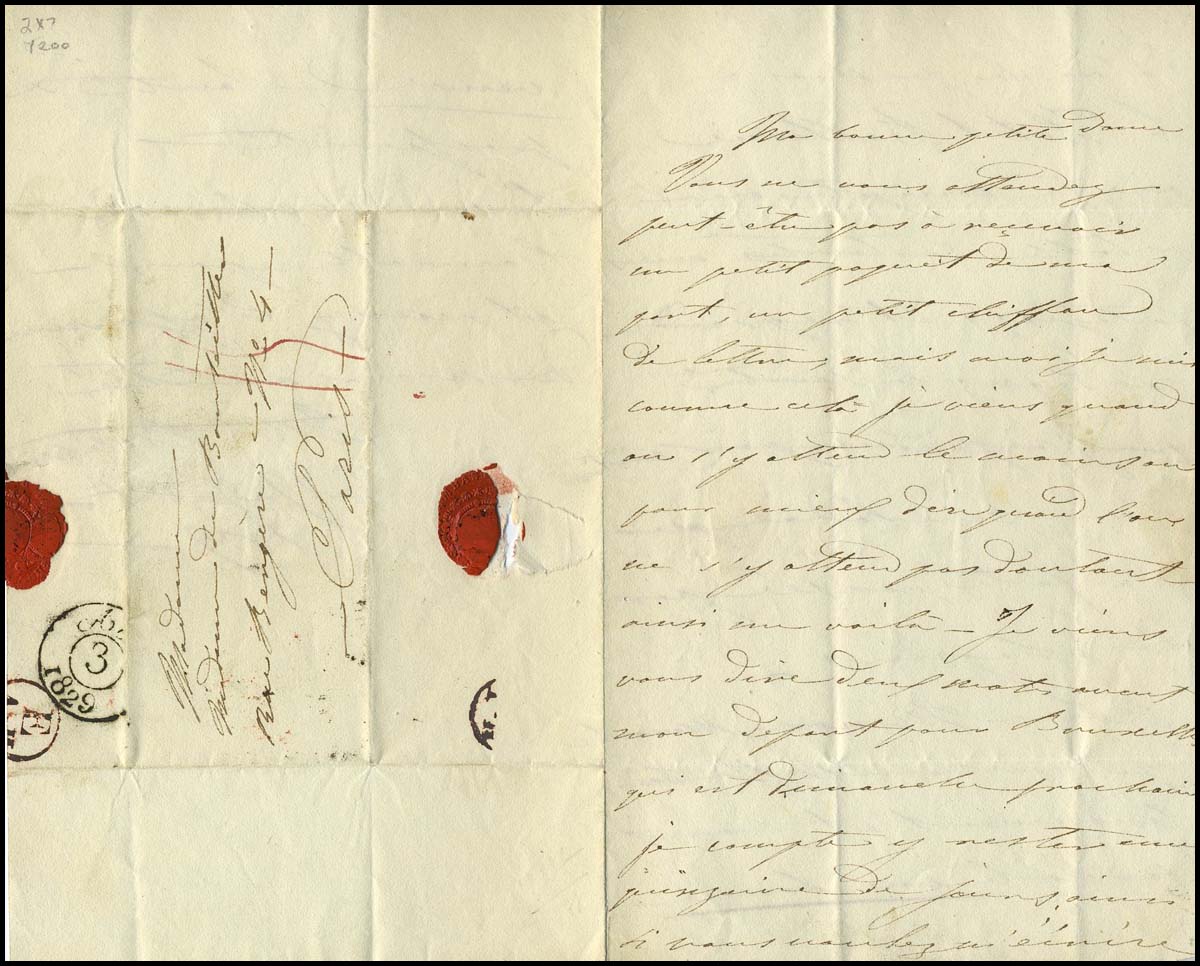 2x7
7200
Madame
Madame de
Rue Bergère No 4 —
— Paris —
3
1829
E
Ma bonne petite Dame
Vous ne vous attendez
peut-être pas à reçevoir
un petit paquet de ma
part, un petit chiffon
de lettre, mais moi je suis
comme celà je viens quand
on s'y attend le moins ou
pour mieux dire quand l'on
ne s'y attend pas d'autant
ainsi me voilà — Je viens
vous dire deux mots avant
mon départ pour Bruxelle
qui est dimanche prochain
je compte y rester une
quinzaine de jours, ainsi
si vous voulez m'écrire